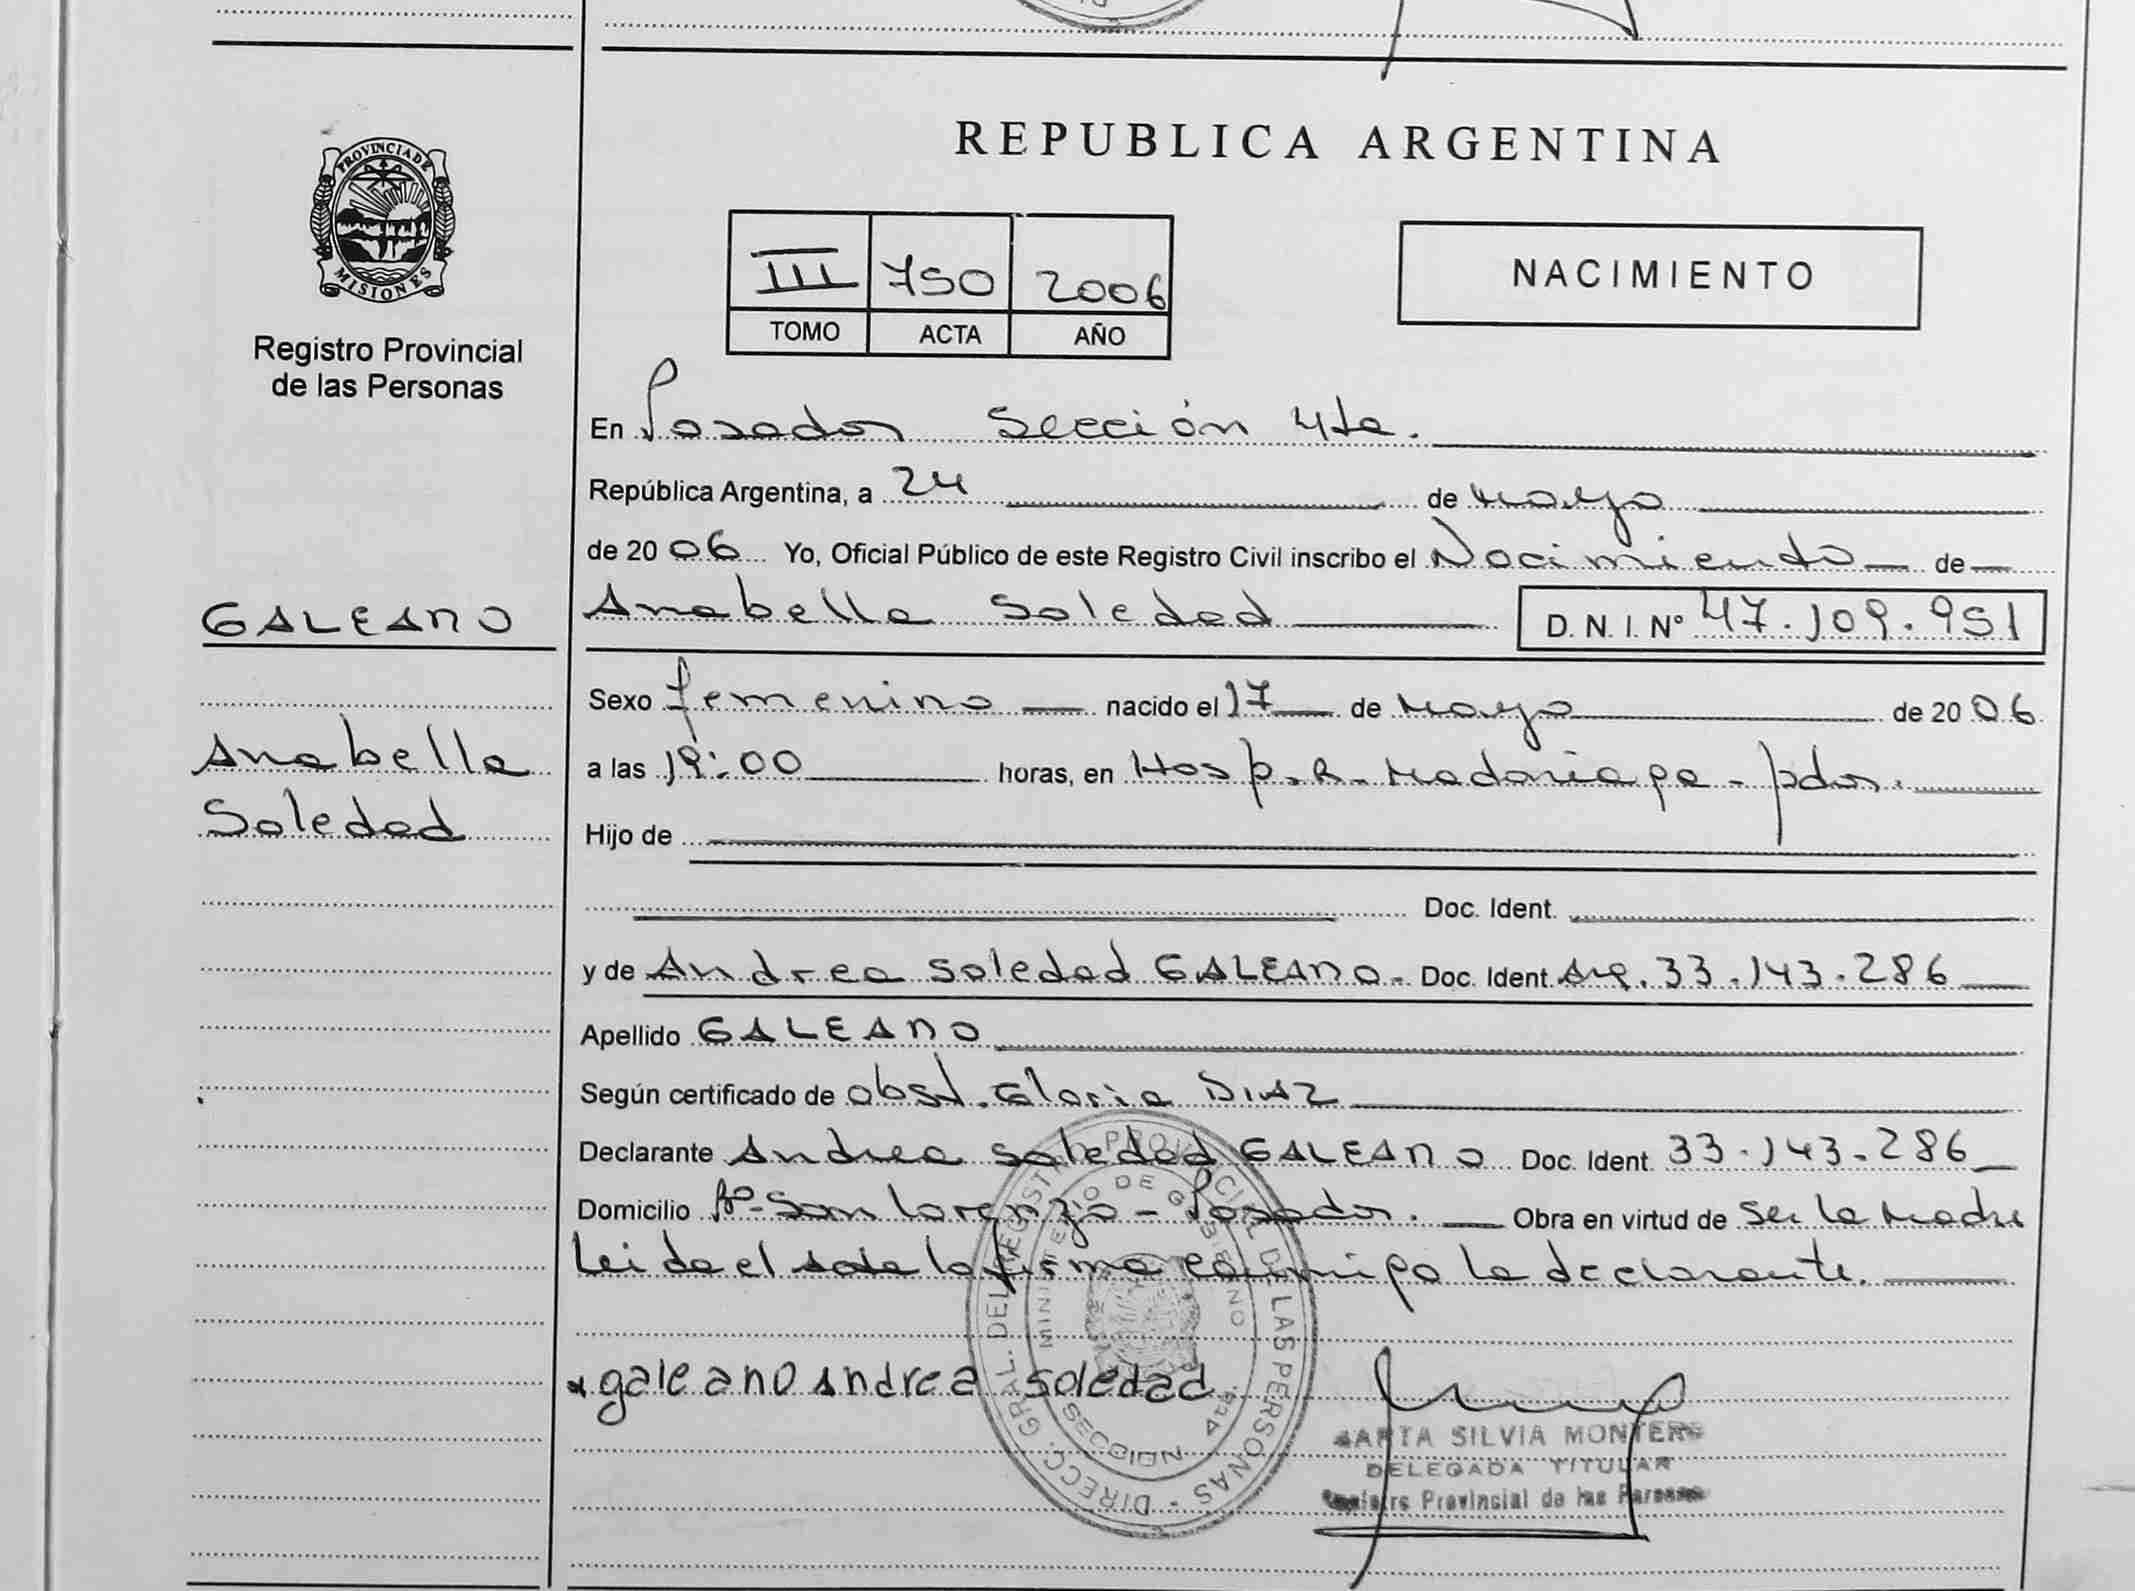 REPUBLICA ARGENTINA
PROVINCIA DE MISIONES
Registro Provincial
de las Personas
III 750 2006
TOMO ACTA AÑO
NACIMIENTO
En Posadas Sección 4ta.
República Argentina, a 24 de Mayo
de 2006 Yo, Oficial Público de este Registro Civil inscribo el Nacimiento de
GALEANO
Anabella Soledad D. N. I. Nº 47.109.951
Sexo femenino nacido el 17 de Mayo de 2006
Anabella
Soledad
a las 19:00 horas, en Hosp. R. Madariaga - Pdas.
Hijo de
Doc. Ident.
y de Andrea Soledad GALEANO - Doc. Ident. Arg. 33.143.286
Apellido GALEANO
Según certificado de obst. Gloria DIAZ
Declarante Andrea Soledad GALEANO Doc. Ident. 33.143.286
Domicilio Bº San Lorenzo - Posadas. Obra en virtud de ser la Madre
Leida el acta la firma conmigo la declarante.
galeano Andrea soledad
DIRECC. GRAL. DEL REGISTRO PROVINCIAL DE LAS PERSONAS
MINISTERIO DE GOBIERNO
SECCION 4ta.
MARTA SILVIA MONTERO
DELEGADA TITULAR
Registro Provincial de las Personas